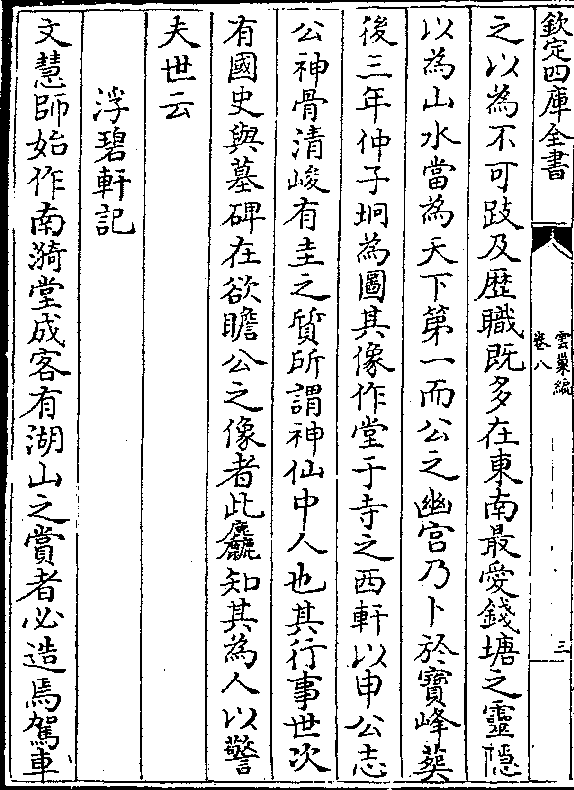 欽定四庫全書
雲巢編
卷八
三
之以為不可跂及歷職既多在東南最愛錢塘之靈隱
以為山水當為天下第一而公之幽宮乃卜於寶峰葬
後三年仲子坰為圖其像作堂于寺之西軒以申公志
公神骨清峻有圭之質所謂神仙中人也其行事世次
有國史與墓碑在欲瞻公之像者此麤知其為人以警
夫世云
浮碧軒記
文慧師始作南漪堂成客有湖山之賞者必造焉駕車